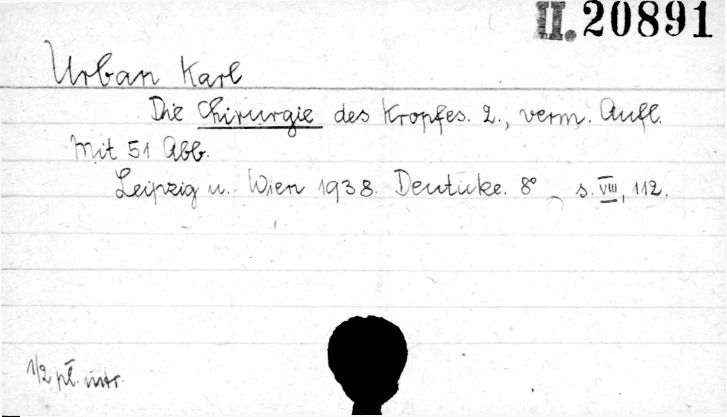 II. 20891
Urban Karl
Die Chirurgie des Kropfes. 2., verm. Aufl.
Mit 51 Abb.
Leipzig u. Wien 1938. Deuticke. 8° s. VIII, 112.
1/2 pł.